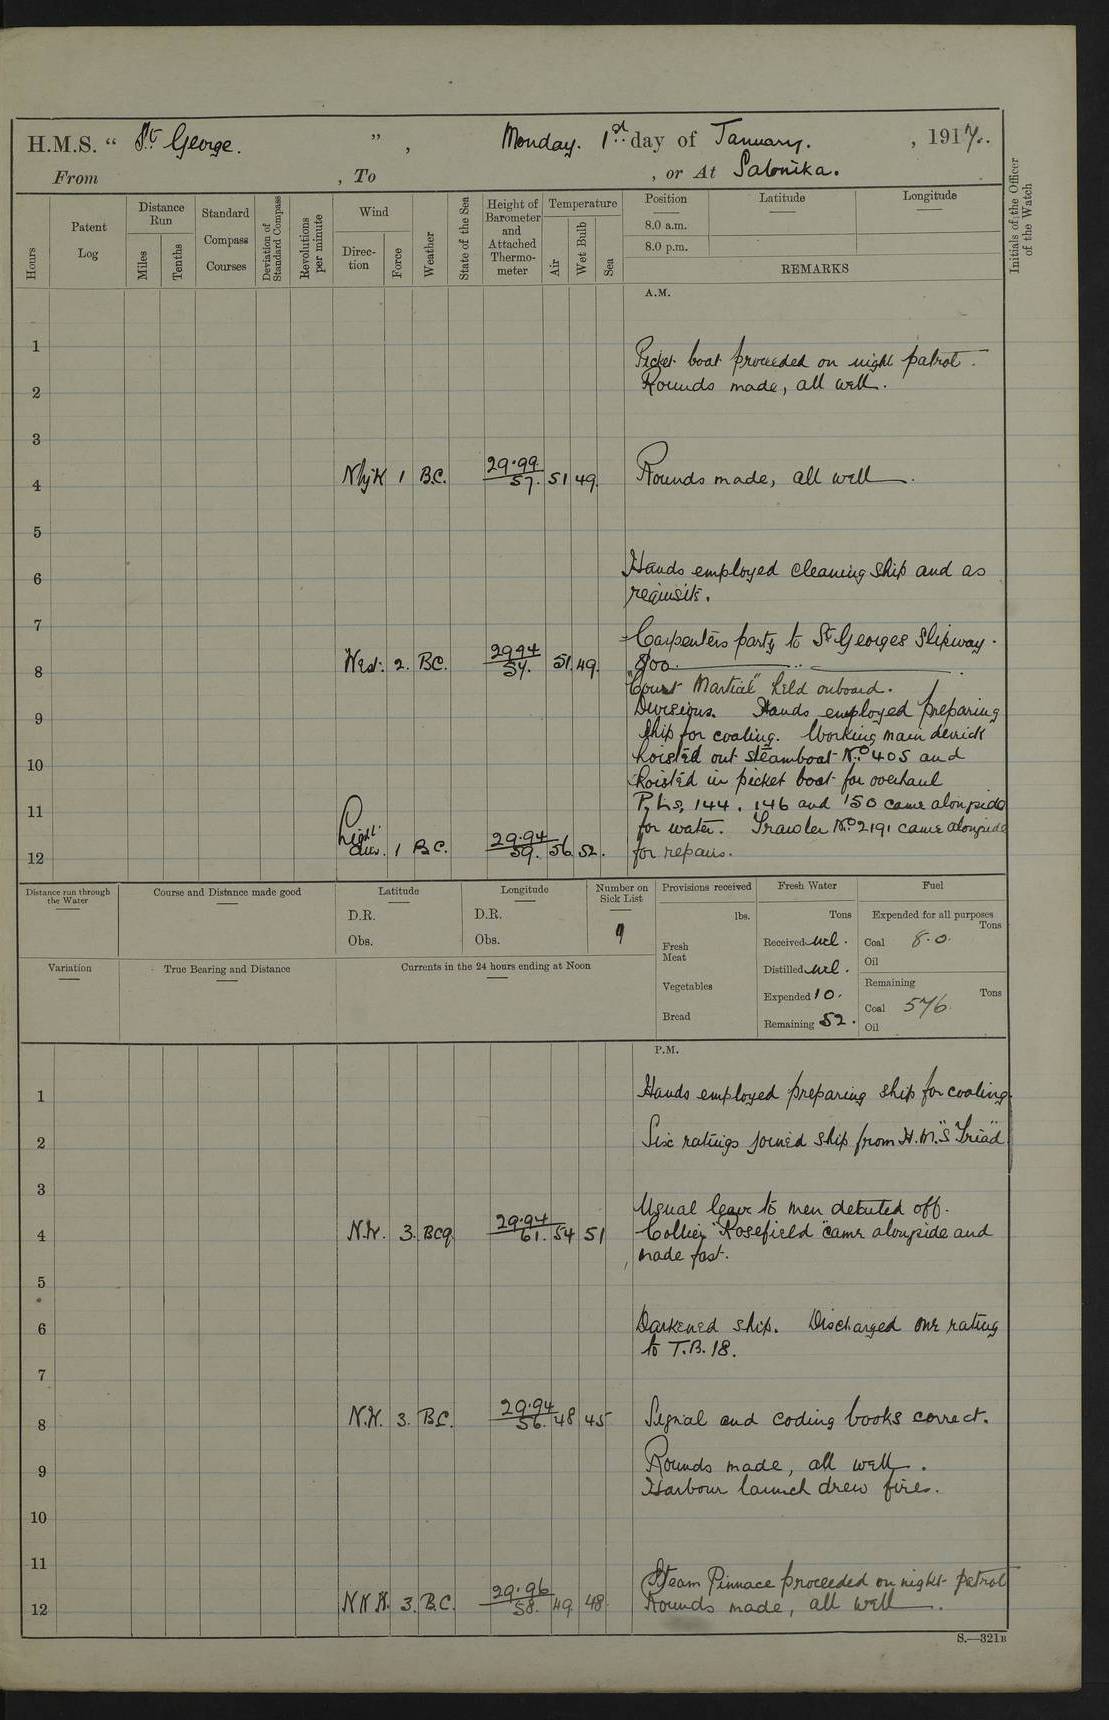 H.M.S. " St George. ", Monday. 1st day of January. , 1917.
From , To , or At Salonika.
Hours
Patent Log
Distance Run
Miles
Tenths
Standard Compass Courses
Deviation of Standard Compass
Revolutions per minute
Wind
Direction
Force
Weather
State of the Sea
Height of Barometer and Attached Thermometer
Temperature
Air
Wet Bulb
Sea
Position
8.0 a.m.
8.0 p.m.
Latitude
Longitude
REMARKS
Initials of the Officer of the Watch
A.M.
1
Picket boat proceeded on night patrol.
2 Rounds made, all well.
3
4 NbyW 1 B.C. 29.99 57. 51 49. Rounds made, all well.
5
6 Hands employed cleaning ship and as
requisite.
7 Carpenters party to St Georges Slipway.
8 West. 2. BC. 2994 54. 51. 49. 800
"Court Martial" held onboard.
9 Divisions. Hands employed preparing
ship for coaling. Working main derrick
10 hoisted out steamboat No 405 and
hoisted in picket boat for overhaul
11 P.Ls, 144, 146 and 150 came alongside
for water. Trawler No 2191 came alongside
12 Light airs. 1 B.C. 29.94 59. 56 52. for repairs.
Distance run through the Water
Course and Distance made good
Latitude
D.R.
Obs.
Longitude
D.R.
Obs.
Number on Sick List
9
Provisions received
lbs.
Fresh Meat
Vegetables
Bread
Fresh Water
Tons
Received nil.
Distilled nil.
Expended 10.
Remaining 52.
Fuel
Expended for all purposes
Tons
Coal 8.0.
Oil
Remaining
Tons
Coal 576.
Oil
Variation
True Bearing and Distance
Currents in the 24 hours ending at Noon
P.M.
1 Hands employed preparing ship for coaling.
2 Six ratings joined ship from H.M.S "Triad"
3
Usual leave to men detailed off.
4 N.W. 3. BCq 29.94 61. 54 51 Collier "Rosefield" came alongside and
made fast.
5
6 Darkened ship. Discharged one rating
to T.B. 18.
7
8 N.W. 3. B.C. 29.94 56. 48 45 Signal and coding books correct.
9 Rounds made, all well.
Harbour launch drew fires.
10
11
Steam Pinnace proceeded on night patrol
12 NNW. 3. B.C. 29.96 58. 49. 48. Rounds made, all well.
S.—321B